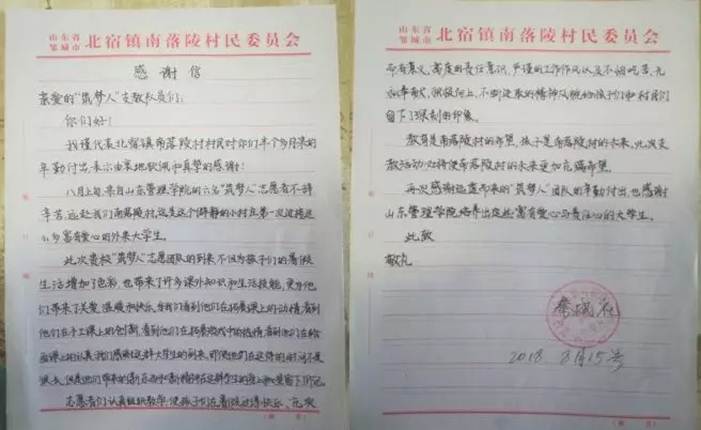 山东省
邹城市 北宿镇南落陵村民委员会
感谢信
亲爱的"筑梦人"支教队员们:
你们好!
我谨代表北宿镇南落陵村村民对你们半个多月来的
辛勤付出表示由衷地钦佩和真挚的感谢!
八月上旬,来自山东管理学院的六名"筑梦人"志愿者不辞
辛苦,远赴我们南落陵村,这是这个僻静的小村庄第一次迎接这
么多富有爱心的外来大学生。
此次贵校"筑梦人"志愿团队的到来,不仅为孩子们的暑假
生活增加了色彩,也带来了许多课外知识和生活技能,更为他
们带来了关爱、温暖和快乐。当我们看到他们在拓展课上的动情,看到
他们在手工课上的创新,看到他们在拓展游戏中的热情,看到他们在绘
画课上的认真,我们感谢这群大学生的到来,即使她们在这待的时间不是
很长,但是她们带来的
志愿者们认真组织教学,使孩子们在暑假过得快乐、充实
山东省
邹城市 北宿镇南落陵村民委员会
而有意义,高度的责任意识,严谨的工作作风以及不怕吃苦、无
私奉献、积极向上、不断进取的精神风貌给孩子们和村民们
留下了深刻的印象。
教育是南落陵村的希望,孩子是南落陵村的未来,此次支
教活动必将使南落陵村的未来更加充满希望。
再次感谢远道而来的"筑梦人"团队的辛勤付出,也感谢
山东管理学院培养出这些富有爱心与责任心的大学生。
此致
敬礼
2018 8月15号